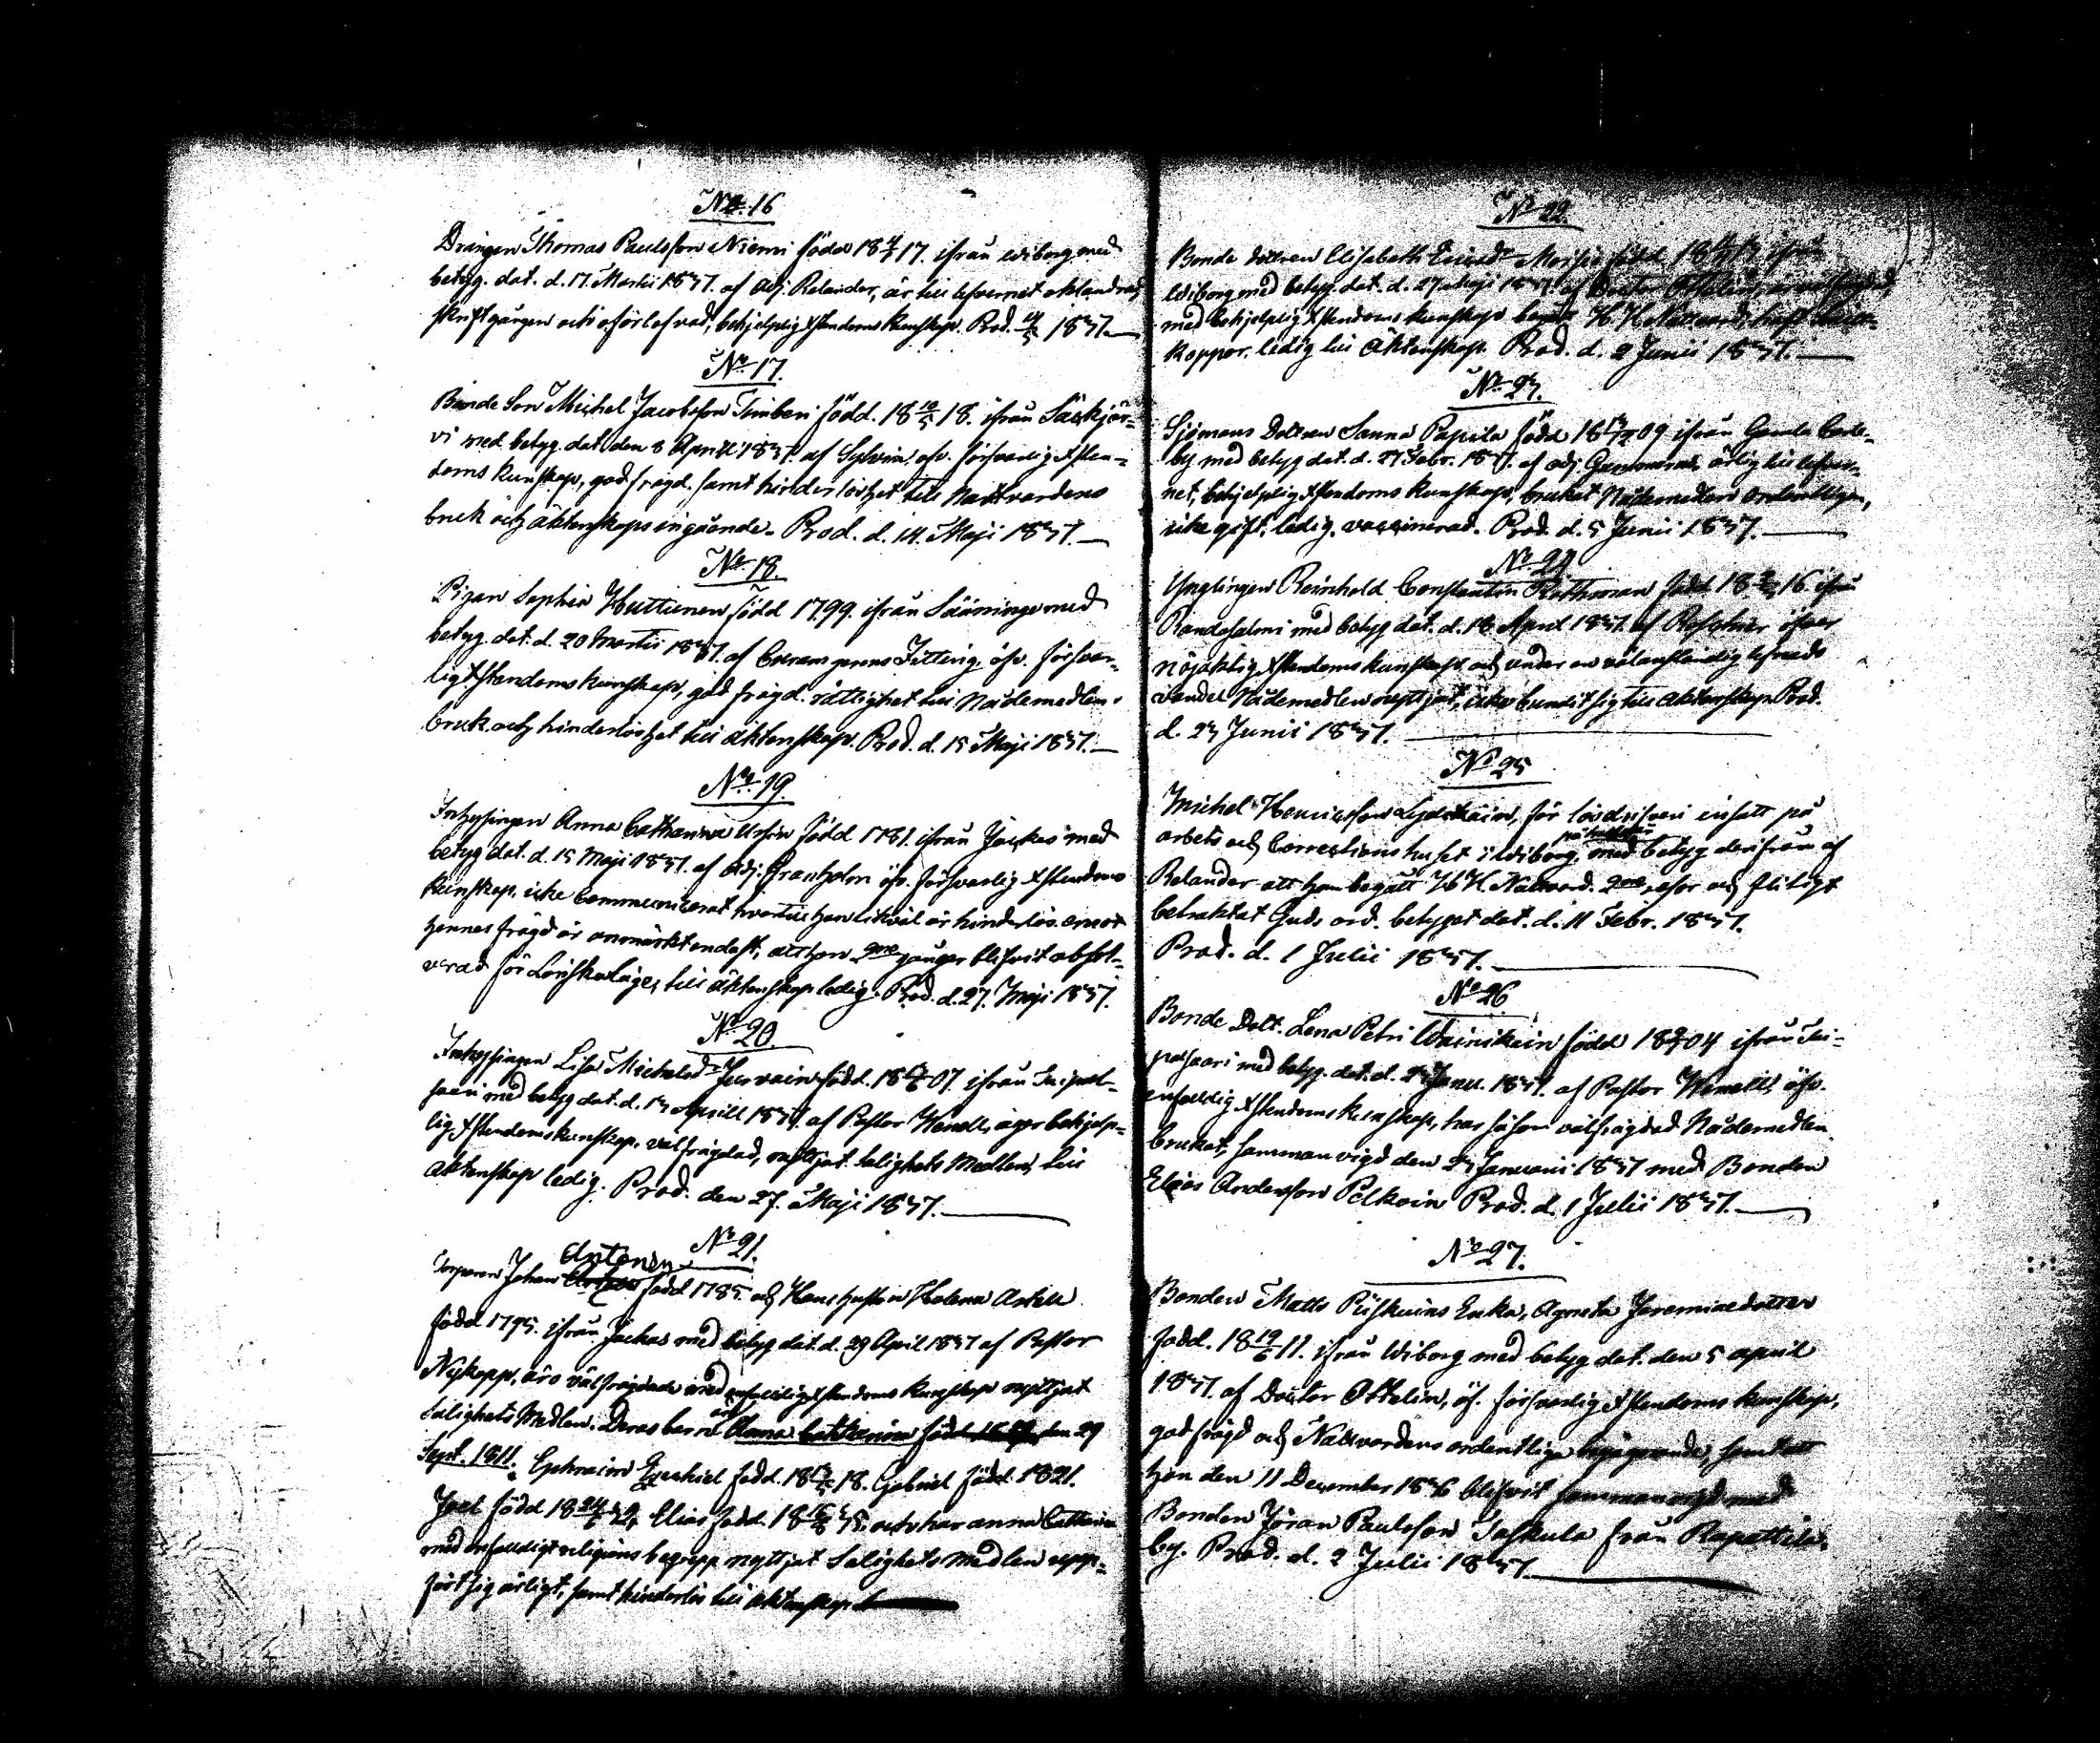 No 16
Drängen Thomas Paulsson Niemi född 18 17. ifrån Wiborg med
betyg. dat. d. 17. Martii 1837. af Adj. Relander, är till lefvernet oklandrad,
skriftgången och oförlofvad, behjelplig Xstendoms kunskap. Prod. 1837.
No 17.
Bonde Son Michel Jacobsson Timberi född. 18 10/5 18. ifrån Säckjär-
vi med betyg. dat. den 8 April 1837. af öfv. försvarlig Xsten-
doms kunskap, god frägd, samt hinderlöshet till Nattvardens
bruk och äktenskaps ingående. Prod. d. 14. Maji 1837.
No 18.
Pigan Sophia Huttunen född 1799. ifrån Sääminge med
betyg. dat. d. 20 Martii 1837. af öfv. försvar-
lig Xstendoms kunskap, god frägd. rättighet till Nådemedlens
bruk och hinderlöshet till äktenskap. Prod. d. 15 Maji 1837.
No 19.
Inhysingen Anna Catharina Ursin född 1781. ifrån Jackas med
betyg dat. d. 15 Maji 1837. af Adj. Granholm öfv. försvarlig Xstendoms
kunskap, icke Communicerat hvartill hon likväl är hinderlös. emot
hennes frägd är anmärkt endast, att hon 2ne gånger blifvit absol-
verad för Lönskaläge, till äktenskap ledig. Prod. d. 27. Maji 1837.
No 20.
Inhysingen Lisa Michelsd:r född. 18 07. ifrån Taipal-
saari med betyg dat. d. 13 Aprill 1837. af Pastor Wenell, äger behjelp-
lig Xstendoms kunskap, välfrägdad, nyttjat Salighets Medlen, till
äktenskap ledig. Prod. den 27. Maji 1837.
No 21.
Antonen
Torparen Johan född 1785. och Hans hustru Helena
född 1795. ifrån Jackas med betyg dat. d. 29 April 1837 af Pastor
Nykopp, äro välfrägdade med enfaldig Xstendoms kunskap nyttjat
Salighets Medlen. Deras barn Anna Catharina född den 29
Sept. 1811. Ephraim Ezechiel född. 18 18. Gabriel född. 1821.
Joel född 18 Elias född. 18 35. och har Anna Catharina
med enfaldigt religions begrepp nyttjat Salighets medlen upp-
fört sig ärligt, samt hinderlös till äktenskap.
No 22.
Bonde dottren Elisabeth född 18 ifrån
Wiborg med betyg. dat. d. 27 Maji 1837. af Doctor Ottelin,
med behjelplig Xstendoms kunskap H. H. Nattvard, haft
koppor. ledig till äktenskap. Prod. d. 2 Junii 1837.
No 23.
Sjömans Dottren Sanna Papila född 18 09 ifrån Gamla Carle-
by med betyg dat. d. 27 Febr. 1837. af adj. ärlig till lefver-
net, behjelplig Xstendoms kunskap, brukat Nådemedlen ordentligen,
icke gift, ledig. vaccinerad. Prod. d. 5 Junii 1837.
No 24
Ynglingen Reinhold Constantin Rothman född 18 16 ifrån
Randasalmi med betyg dat. d. 18. April 1837. af öfver
nöjaktig Xstendoms kunskap och under en välanständig lefnads
vandel Nådemedlen nyttjat, icke bundit sig till äktenskap Prod.
d. 23 Junii 1837.
No 25
Michel Henricsson för lösdrifveri insatt på
arbets och Corrections huset i Wiborg, med betyg derifrån af
Relander att han begått H. H. Nattvard. 2ne resor och flitigt
betraktat Guds ord. betyget dat. d. 11 Febr. 1837.
Prod. d. 1 Julii 1837.
No 26
Bonde Dott. Lena Petri Wainikain född 18 04 ifrån Tai-
palsaari med betyg. dat. d. 23 Janu. 1837. af Pastor Wenell, öfv.
enfaldig Xstendoms kunskap, har såsom välfrägdad Nådemedlen
brukat, samman vigd den 23 Januarii 1837 med Bonden
Elias Andersson Pelkoin Prod. d. 1 Julii 1837.
No 27.
Bonden Matts Enka, Agneta Jeremiæ dotter
född. 18 19/6 11. ifrån Wiborg med betyg dat. den 5 april
1837. af Doctor Ottelin, öf. försvarlig Xstendoms kunskap,
god frägd och Nattvardens ordentliga begående, samt att
hon den 11 December 1836 blifvit sammanvigd med
Bonden Jöran Paulsson Taskula från Rapattila
by. Prod. d. 2 Julii 1837.